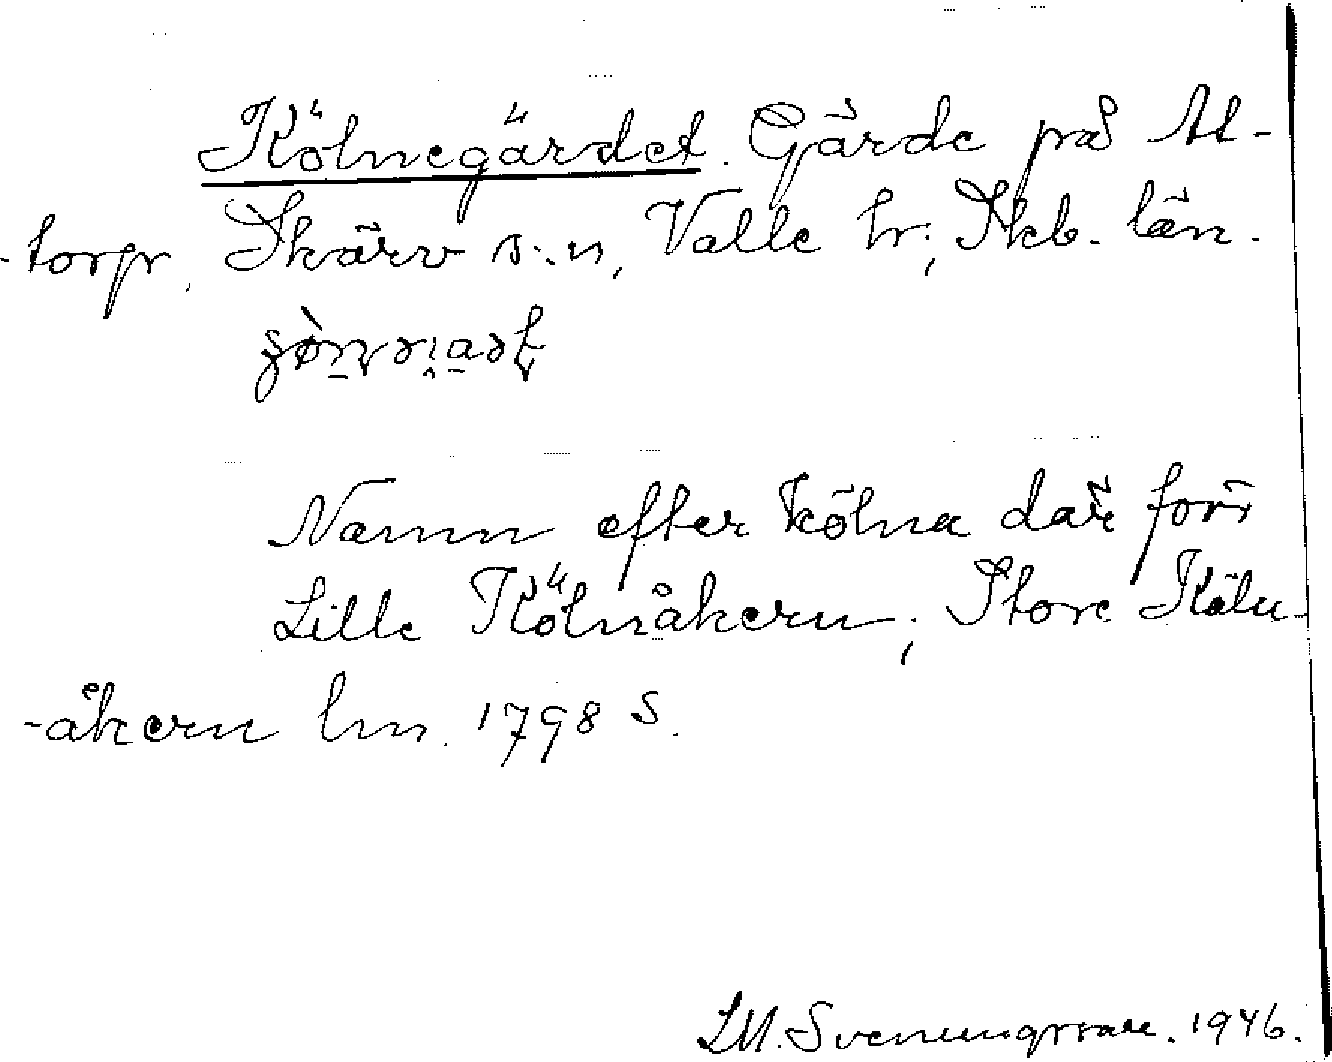 Kölnegärdet. Gärde på Al-
-torp, Skärv s:n, Valle hr; Skb. län.
Namn efter kölna där förr
Lille Kölnåkern; Store Köln-
-åkern lm. 1798 S.
1946.